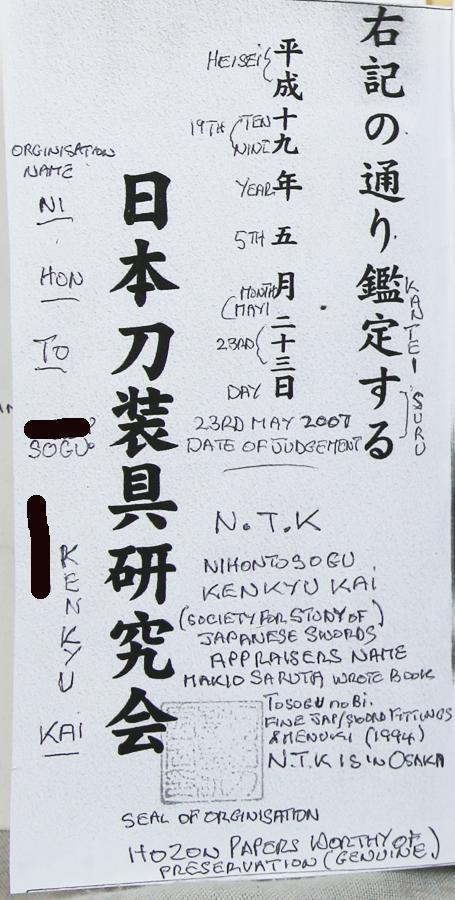 右記の通り鑑定する
KANTEI
SURU
平成十九年五月二十三日
HEISEI
19TH
TEN
NINE
YEAR
5TH
MONTH
MAY
23RD
DAY
23RD MAY 2007
DATE OF JUDGEMENT
日本刀装具研究会
ORGINISATION
NAME
NI
HON
TO
SOGU
KENKYU
KAI
N.T.K
NIHONTOSOGU
KENKYU KAI
(SOCIETY FOR STUDY OF)
JAPANESE SWORDS
APPRAISERS NAME
MAKIO SARUTA WROTE BOOK
TOSOGU no Bi.
FINE JAP/SWORD FITTINGS
& MENUKI (1994)
N.T.K IS iN OSAKA
SEAL OF ORGINISATION
HOZON PAPERS WORTHY OF
PRESERVATION (GENUINE)